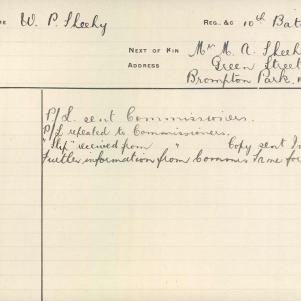 ME W. P. Sheehy REG. &C 10th Bat
NEXT OF KIN Mrs M. A. Sheeh
ADDRESS Green Street
Brompton Park
P/L sent Commissioners.
P/L repeated to Commissioners.
"Slip" received from " Copy sent
Further information from Commrs for